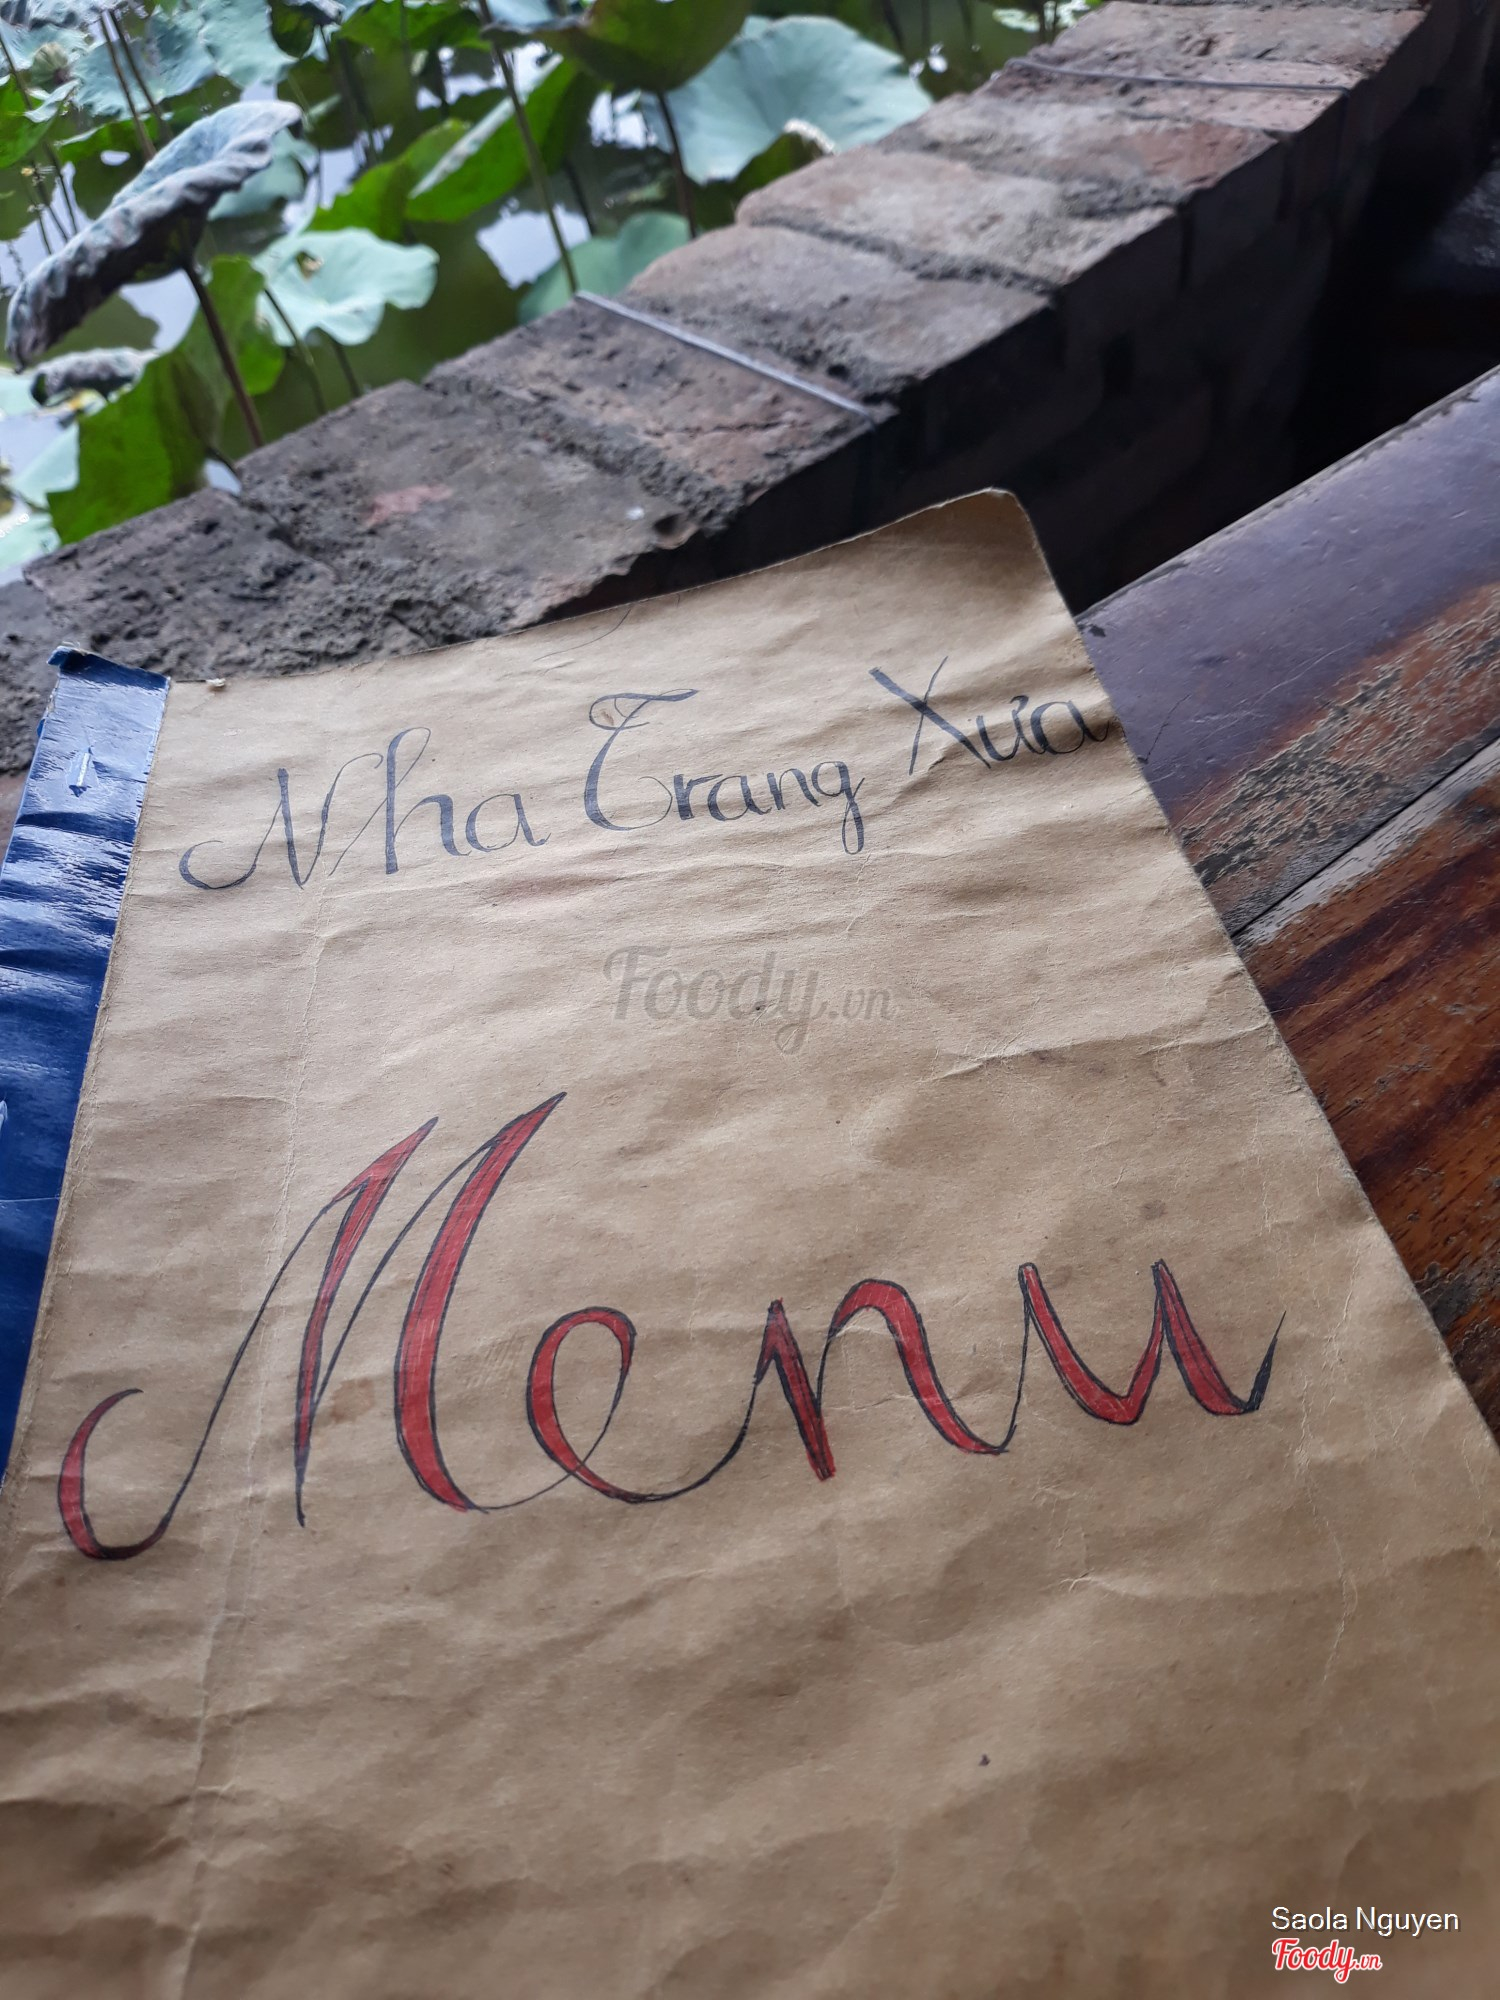 Nha Trang Xưa
Foody.vn
Menu
Saola Nguyen
Foody.vn